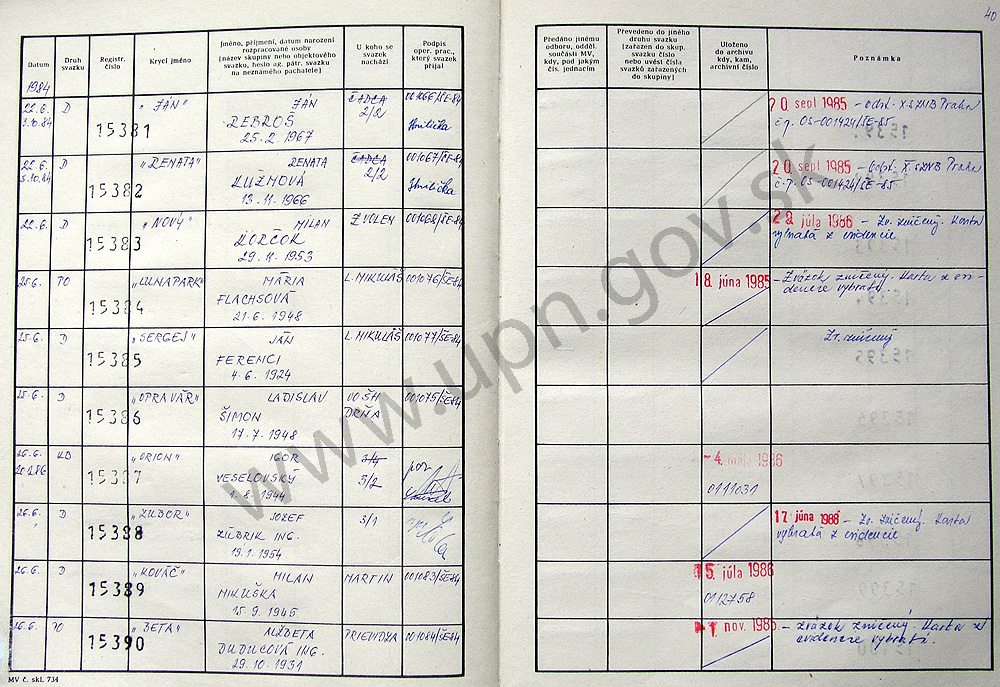 40
Datum
Druh svazku
Registr. číslo
Krycí jméno
Jméno, příjmení, datum narození
rozpracované osoby
(název skupiny nebo objektového
svazku, heslo ag. pátr. svazku
na neznámého pachatele)
U koho se
svazek
nachází
Podpis
oper. prac.,
který svazek
přijal
Předáno jinému
odboru, odděl.
součásti MV,
kdy, pod jakým
čís. jednacím
Převedeno do jiného
druhu svazku
(zařazen do skup.
svazku číslo
nebo uvést čísla
svazků zařazených
do skupiny)
Uloženo
do archivu
kdy, kam,
archivní číslo
Poznámka
1984
22.6. D 15381 "JÁN" JÁN ČADCA 001066/ŠE-84
3.10.84 DEBROŠ 2/2
25.2.1967
20 sept 1985 - odst. X.SNB Praha
č.p. 05-001424/ŠE-85
22.6. D 15382 "RENATA" RENATA ČADCA 001067/ŠE-84
3.10.84 2/2
13.11.1966
20 sept 1985 - odst. X SNB Praha
č.p. 05-001424/ŠE-85
22.6. D 15383 "NOVÝ" MILAN ZVOLEN 001068/ŠE-84
KORČOK
29.11.1953
28 júla 1986 - Zv. zničený. Karta
vybratá z evidencie
25.6. TO 15384 "LUNAPARK" MÁRIA L. MIKULÁŠ 001076/ŠE84
FLACHSOVÁ
21.6.1948
18. júna 1985 - Zväzok zničený. Karta z evi-
dencie vybratá.
25.6. D 15385 "SERGEJ" JÁN L. MIKULÁŠ 001077/ŠE84
FERENCI
4.6.1924
Zv. zničený
25.6. D 15386 "OPRAVÁR" LADISLAV OO ŠH 001075/ŠE84
ŠIMON DRŇA
17.7.1948
26.6. 15387 "ORION" IGOR 3/4
VESELOVSKÝ 3/2
1.8.1944
-4. mája 1986
0111031
26.6. D 15388 "ZUBOR" JOZEF 3/1
ZÚBRIK ING.
19.1.1954
17 júna 1988 - Zv. zničený. Karta
vybratá z evidencie
26.6. D 15389 "KOVÁČ" MILAN MARTIN 001083/ŠE84
MIKUŠKA
15.9.1945
15. júla 1986
0112758
26.6. TO 15390 "BETA" ALŽBETA PRIEVIDZA 001084/ŠE84
DUDUCOVÁ ING.
29.10.1931
-1 nov. 1985 - Zväzok zničený. Karta z
evidencie vybratá.
MV č. skl. 734
www.upn.gov.sk